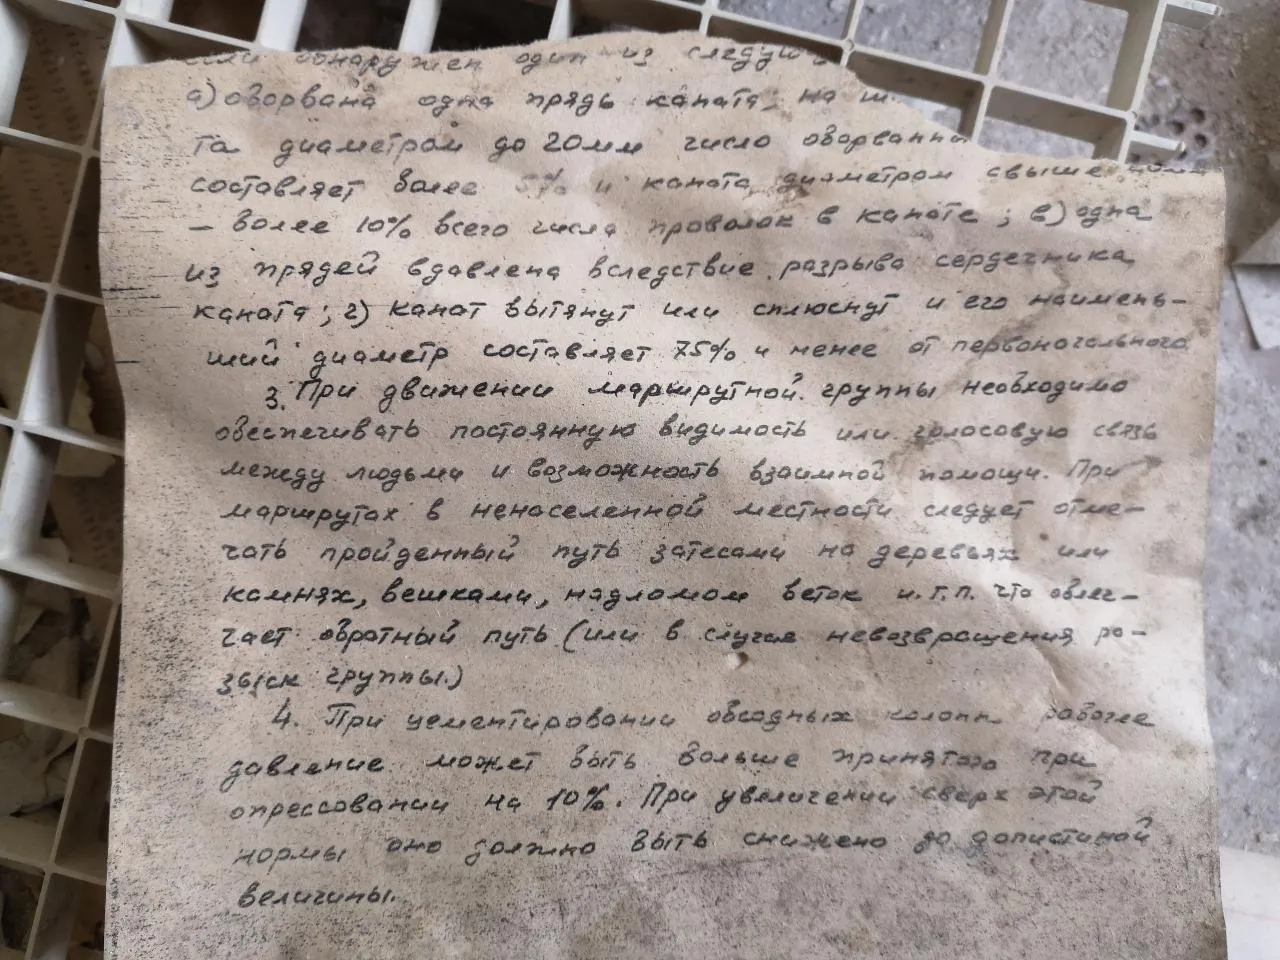 если обнаружен один из следую
а) оборвана одна прядь каната; на
та диаметром до 20мм число оборванн
составляет более 5% и каната диаметром свыше 20мм
— более 10% всего числа проволок в канате; в) одна
из прядей вдавлена вследствие разрыва сердечника
каната; г) канат вытянут или сплюснут и его наимень-
ший диаметр составляет 75% и менее от первоначального
3. При движении маршрутной группы необходимо
обеспечивать постоянную видимость или голосовую связь
между людьми и возможность взаимной помощи. При
маршрутах в ненаселенной местности следует отме-
чать пройденный путь затесами на деревьях или
камнях, вешками, надломом веток и.т.п. что облег-
чает обратный путь (или в случае невозвращения ро-
зыск группы.)
4. При цементировании обсадных колонн рабочее
давление может быть больше принятого при
опрессовании на 10%. При увеличении сверх этой
нормы оно должно быть снижено до допистиной
величины.